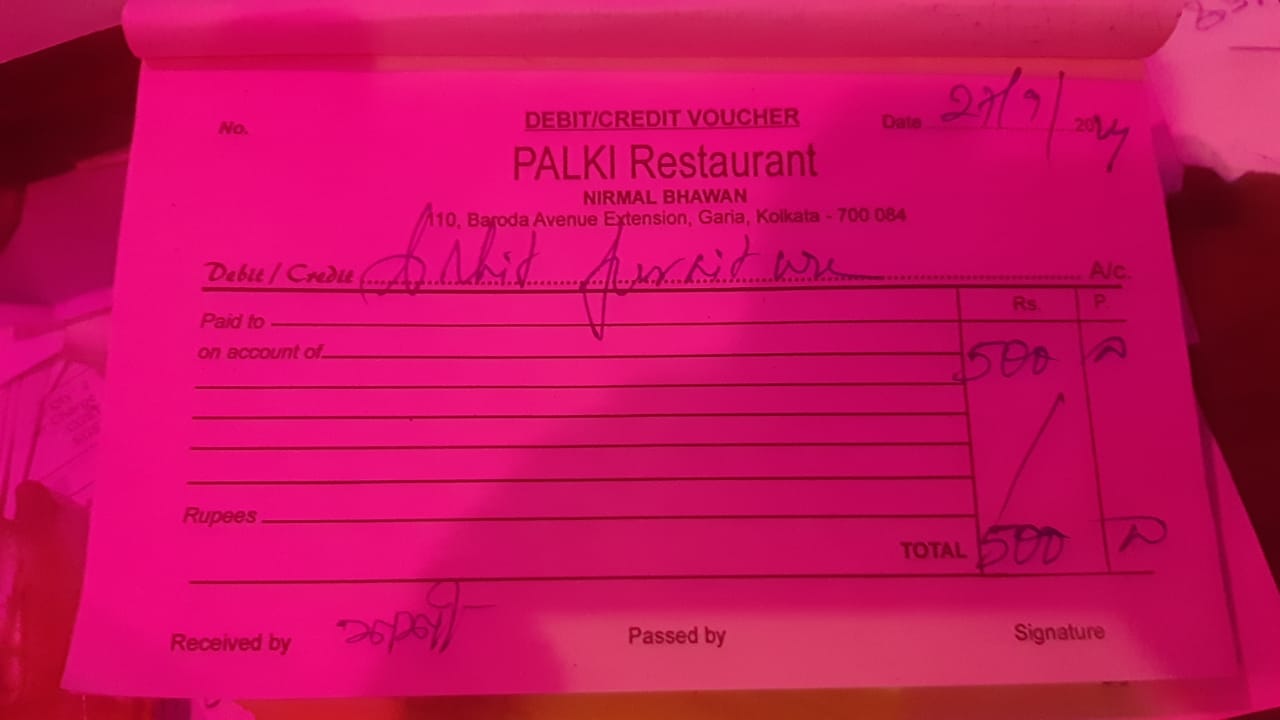 No. DEBIT/CREDIT VOUCHER Date 27/9/ 2024
PALKI Restaurant
NIRMAL BHAWAN
110, Baroda Avenue Extension, Garia, Kolkata - 700 084
Debit / Credit furniture A/c.
Rs. P.
Paid to
on account of 500
Rupees
TOTAL 500
Received by Passed by Signature